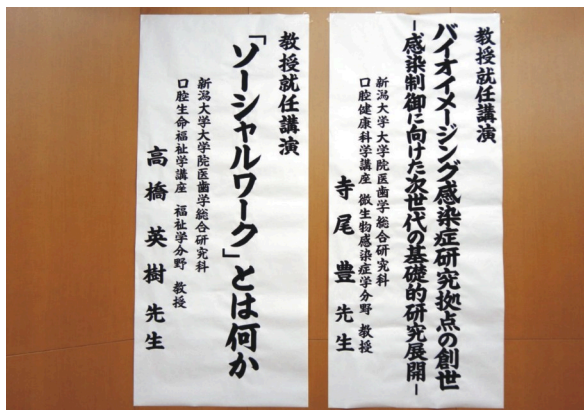 教授就任講演
バイオイメージング感染症研究拠点の創世
-感染制御に向けた次世代の基礎的研究展開-
新潟大学大学院医歯学総合研究科
口腔健康科学講座 微生物感染症学分野 教授
寺尾 豊 先生
教授就任講演
「ソーシャルワーク」とは何か
新潟大学大学院医歯学総合研究科
口腔生命福祉学講座 福祉学分野 教授
高橋 英樹 先生